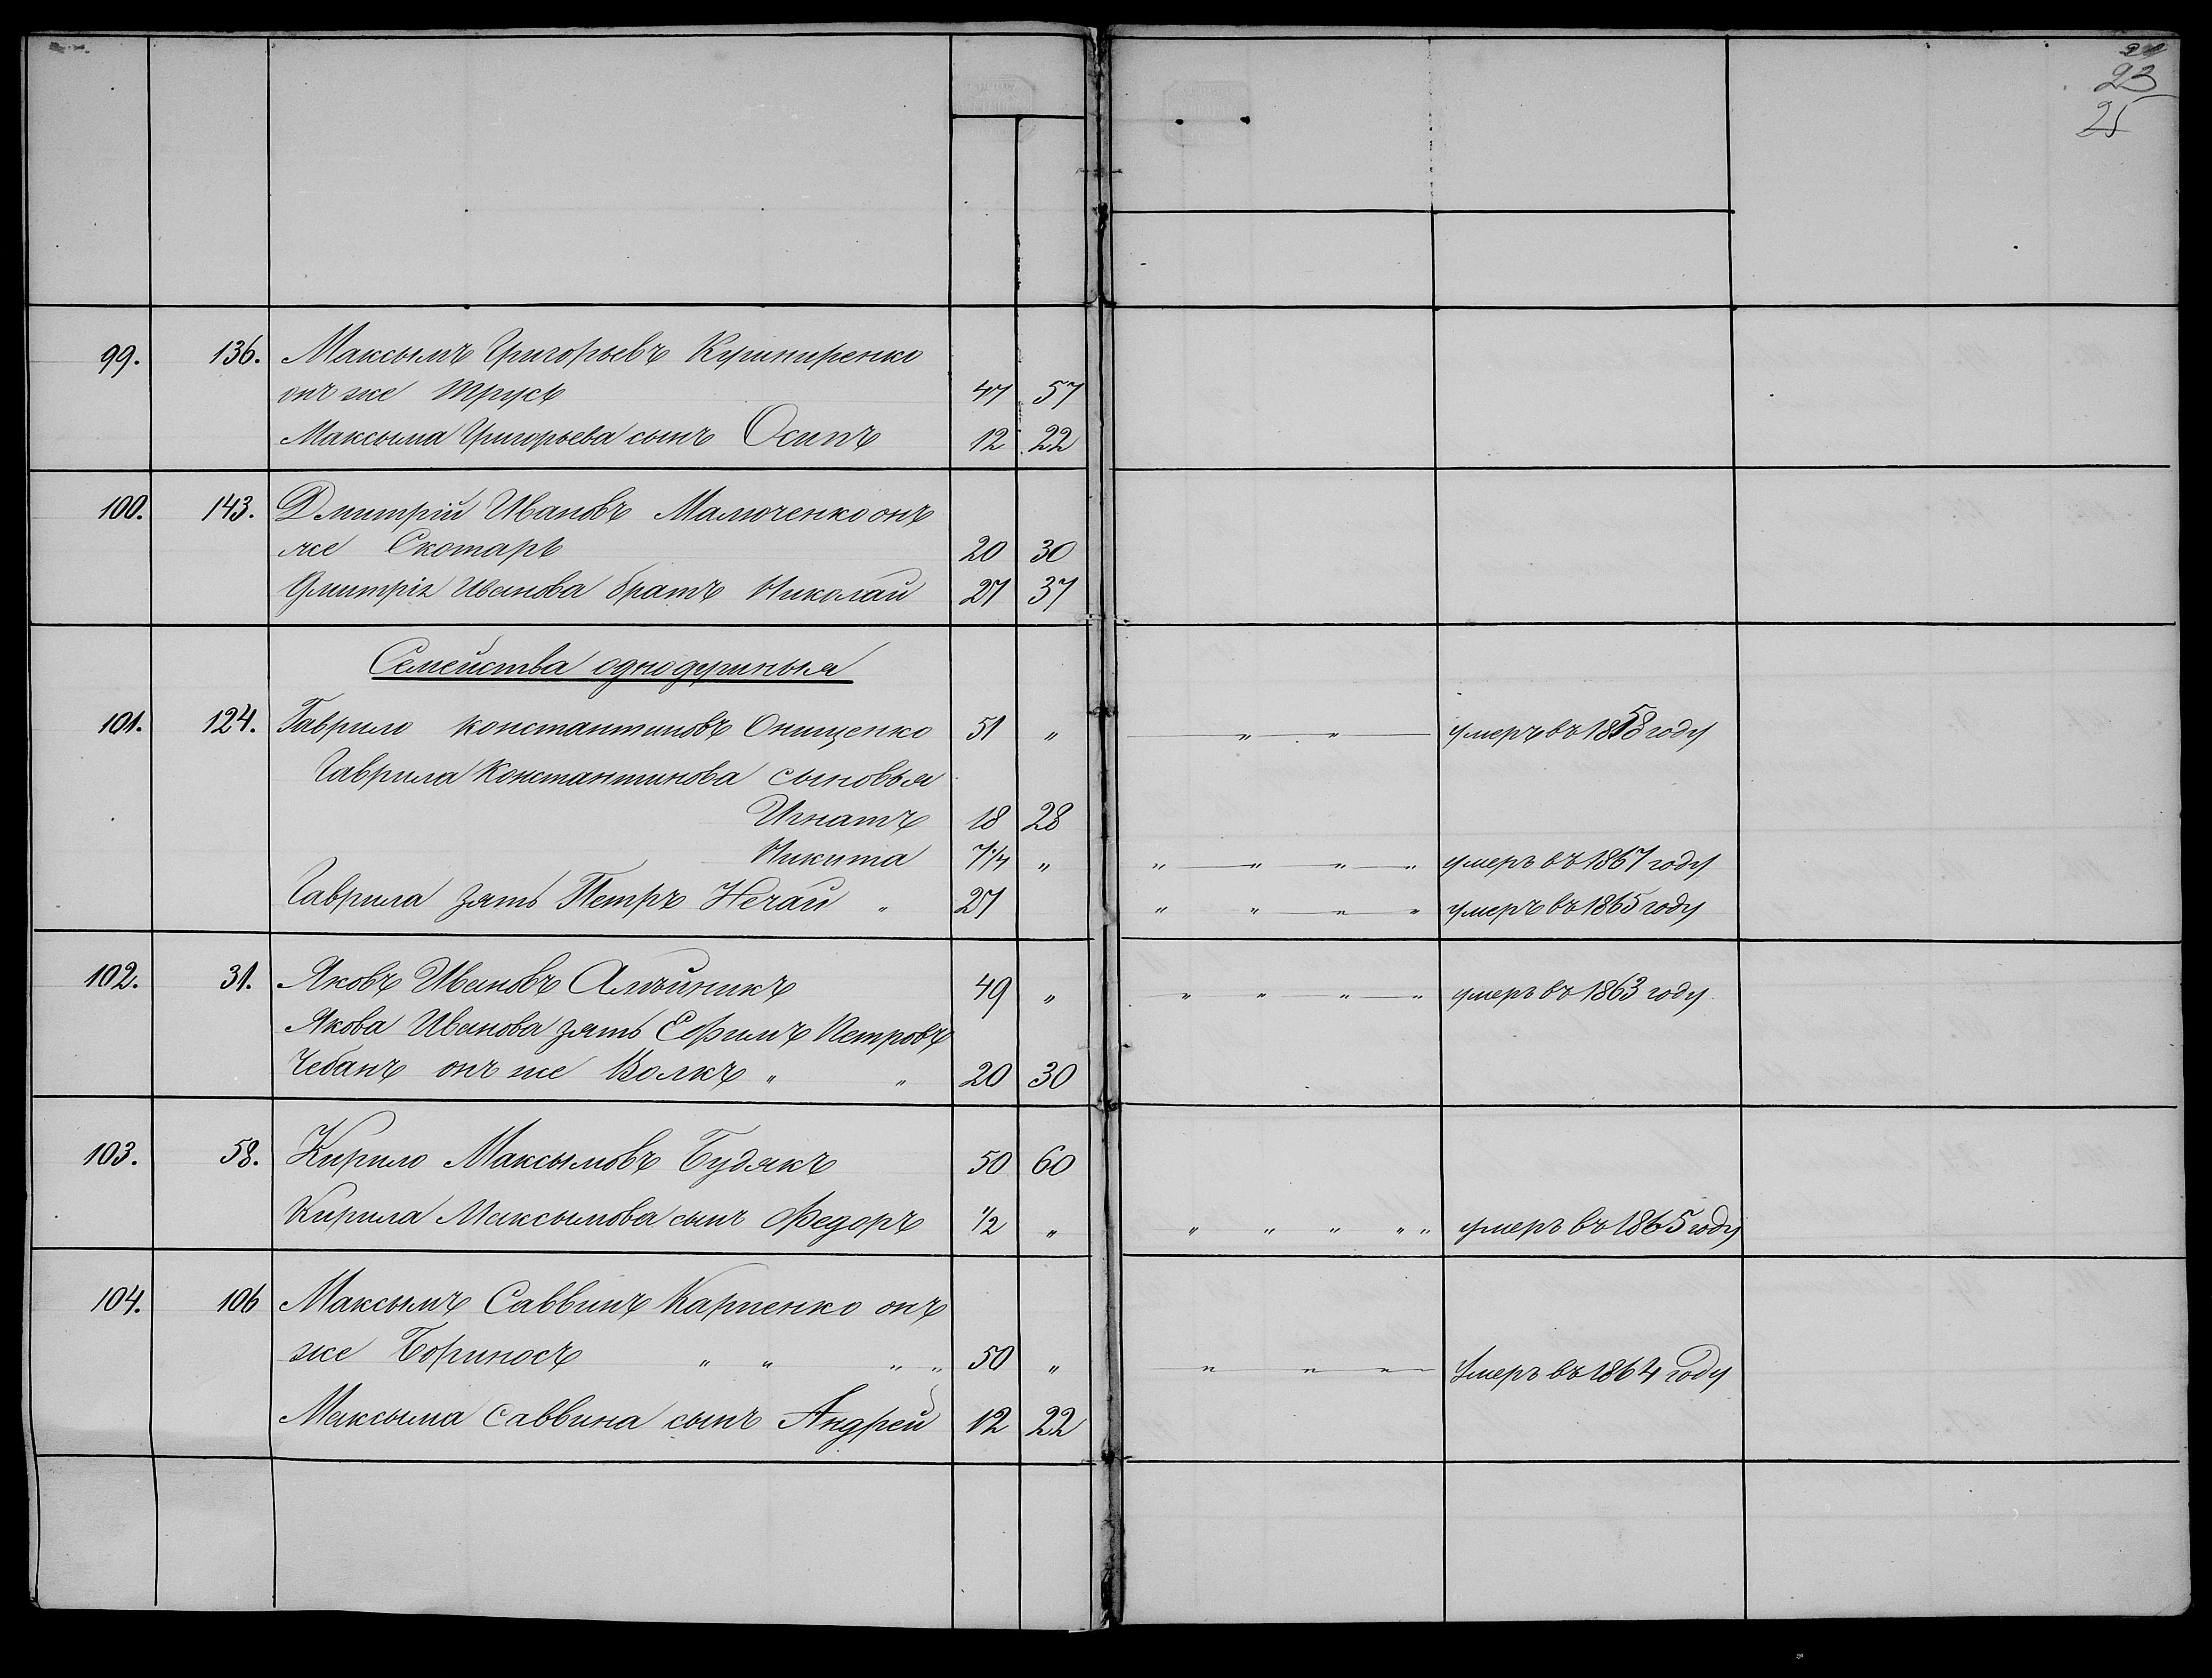 23
25
99. 136. Максымъ Григорьевъ
онъ же Трусъ 47 57
Максыма Григорьева сынъ Осипъ 12 22
100. 143. Дмитрій Ивановъ Малюченко онъ
же Скотарь 20 30
Дмитрія Иванова братъ Николай 27 37
Семейства однодушныя
101. 124. Гаврило Константиновъ Онищенко 51 " " " умеръ въ 1858 году
Гаврила Константинова сыновья
Игнатъ 18 28
Никита 7 1/4 " " " " " умеръ въ 1867 году
Гаврила зять Петръ Нечай " 27 " " " " умеръ въ 1865 году
102. 31. Яковъ Ивановъ Алѣйникъ 49 " " " " " умеръ въ 1863 году
Якова Иванова зять Ефимъ Петровъ
Чебанъ онъ же Волкъ " " 20 30
103. 58. Кирило Максымовъ Будякъ 50 60
Кирила Максымова сынъ Федоръ 1/2 " " " " " " умеръ въ 1865 году
104. 106 Максымъ Саввинъ Карпенко онъ
же Бориносъ " " " " 50 " " " " умеръ въ 1864 году
Максыма Саввина сынъ Андрей 12 22